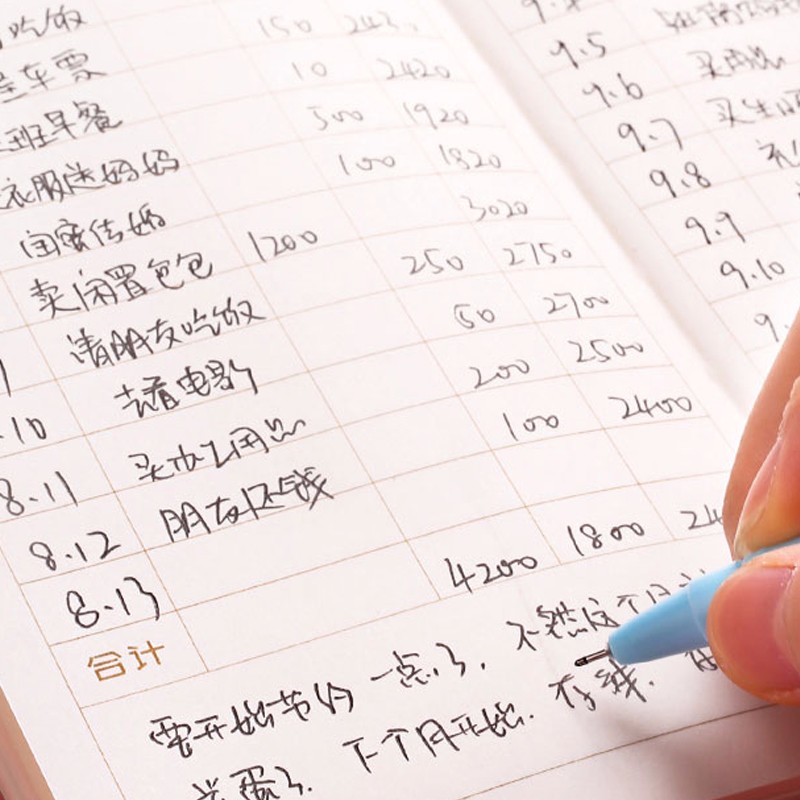 吃饭 150 243
车票 10 2420
班早餐 500 1920
衣服送妈妈 100 1820
闺蜜结婚 3020
卖闲置包包 1200 250 2750
请朋友吃饭 50 2700
10 去看电影 200 2500
8.11 买办公用品 100 2400
8.12 朋友还钱
8.13
合计 4200 1800 24
要开始节约一点了. 不然这个月
光蛋了. 下个月开始. 存钱.
9.5
9.6
9.7 买生
9.8
9.9
9.10
9.